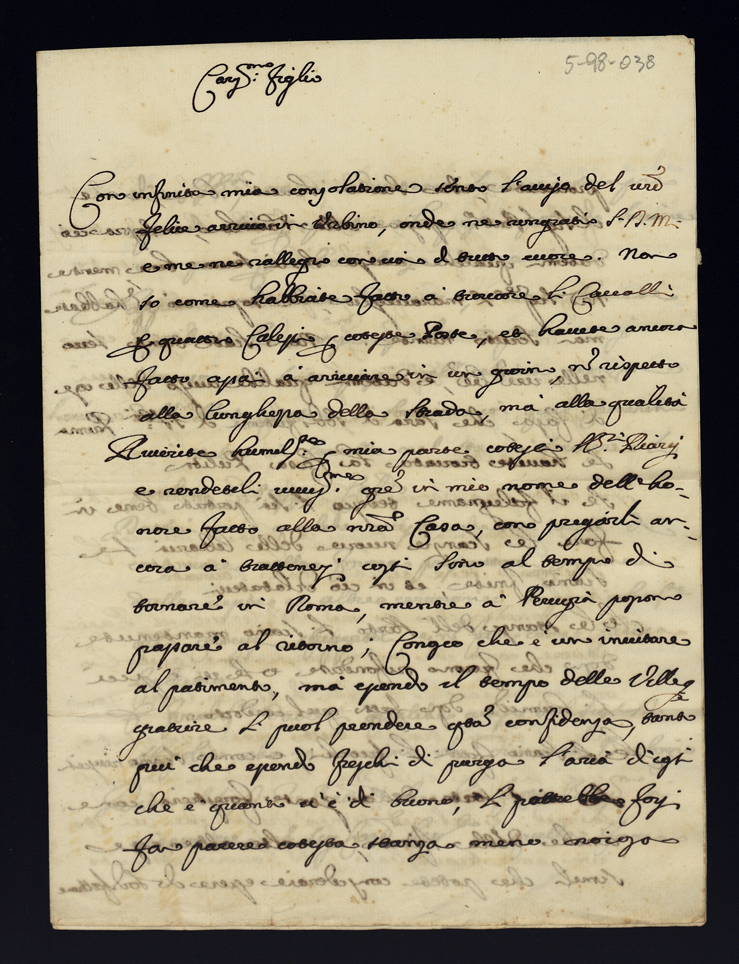 5-98-038
Cariss.mo Figlio
Con infinita mia consolatione sento l'auiso del vrō
felice arriuo in Urbino, onde ne ringratio S. D. M.
e me ne rallegro con uoi di tutto cuore. Non
so come habbiate fatto à trouare li Caualli
p quattro Calessi p coteste Poste, et hauete ancora
fatto assai à arriuare in un giorno, nō rispetto
alla lunghezza della strada, mà alla qualità
Riuerite humil.te p mia parte cotesti SS.ri
e rendeteli uiuiss.me gre in mio nome dell'ho-
nore fatto alla nrā Casa, con pregarli an-
cora à trattenersi costì sino al tempo di
tornare in Roma, mentre à Perugia posson
passare al ritorno; Conosco che è un inuitare
al patimento, mà essendo il tempo delle Villeg-
giature si puol prendere qstā confidenza, tanto
più che essendo freschi di purga l'aria di costì
che è quanto ci è di buono, li potrebbe forsi
far parere cotesta stanza meno noiosa